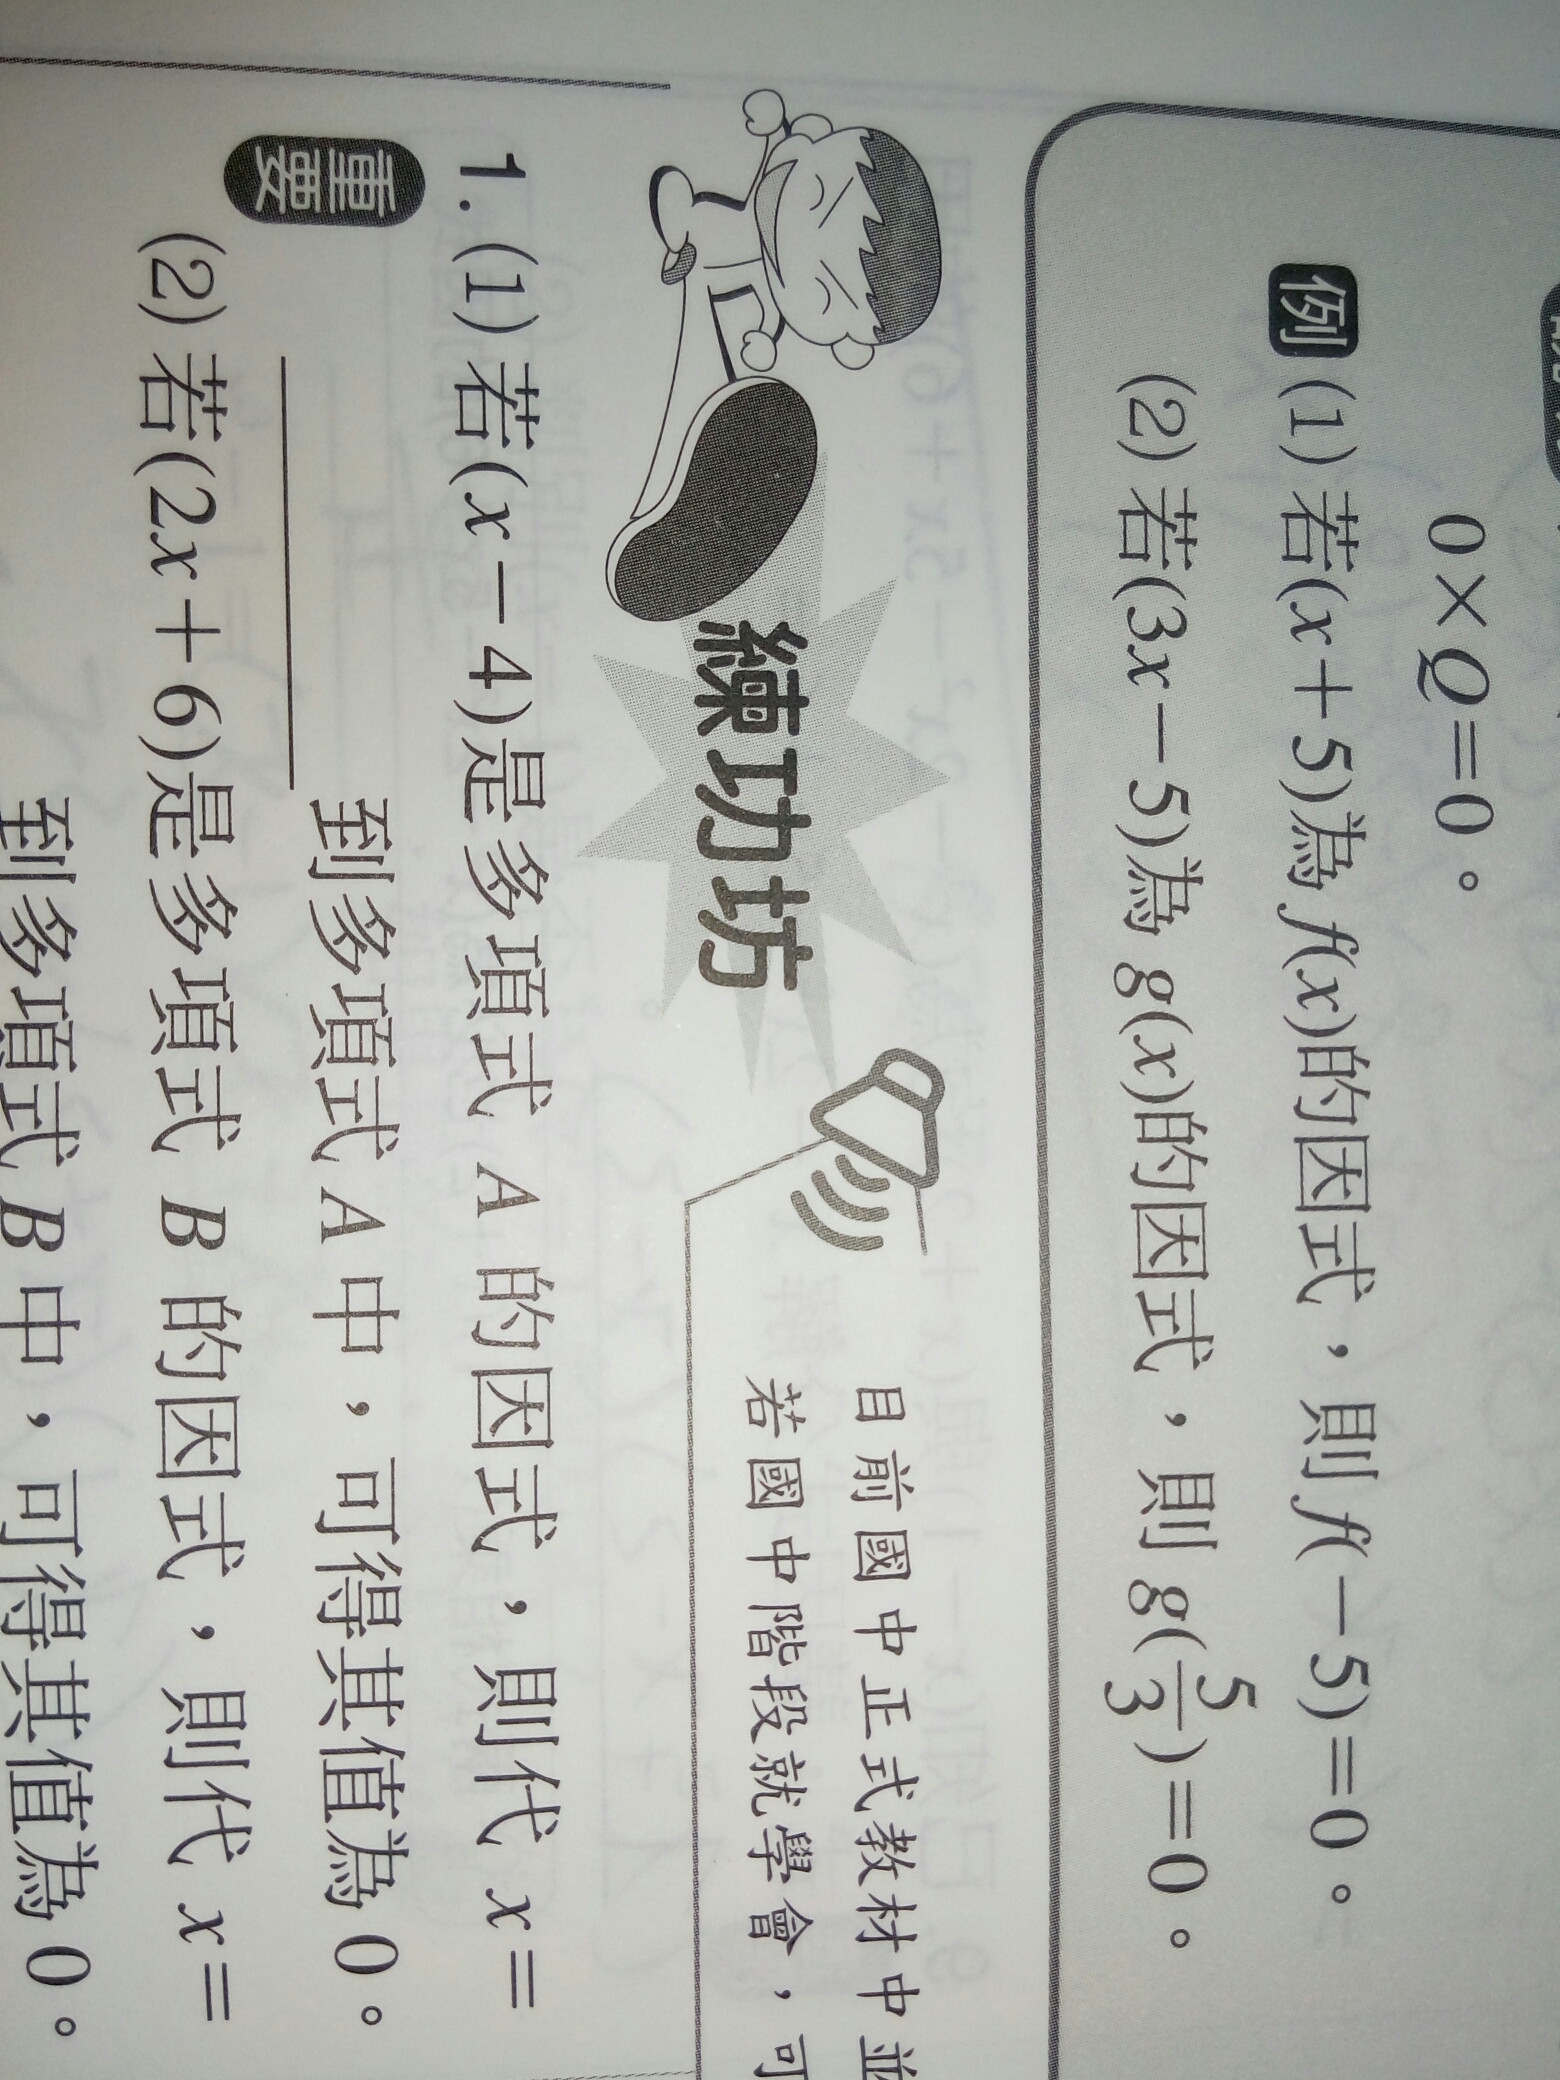 0×Q=0。
例 (1) 若(x+5)為 f(x)的因式,則 f(-5)=0。
(2) 若(3x-5)為 g(x)的因式,則 g(5/3)=0。
練功坊
目前國中正式教材中並
若國中階段就學會,可
1. (1) 若(x-4)是多項式 A 的因式,則代 x=
重要 ______ 到多項式 A 中,可得其值為 0。
(2) 若(2x+6)是多項式 B 的因式,則代 x=
到多項式 B 中,可得其值為 0。